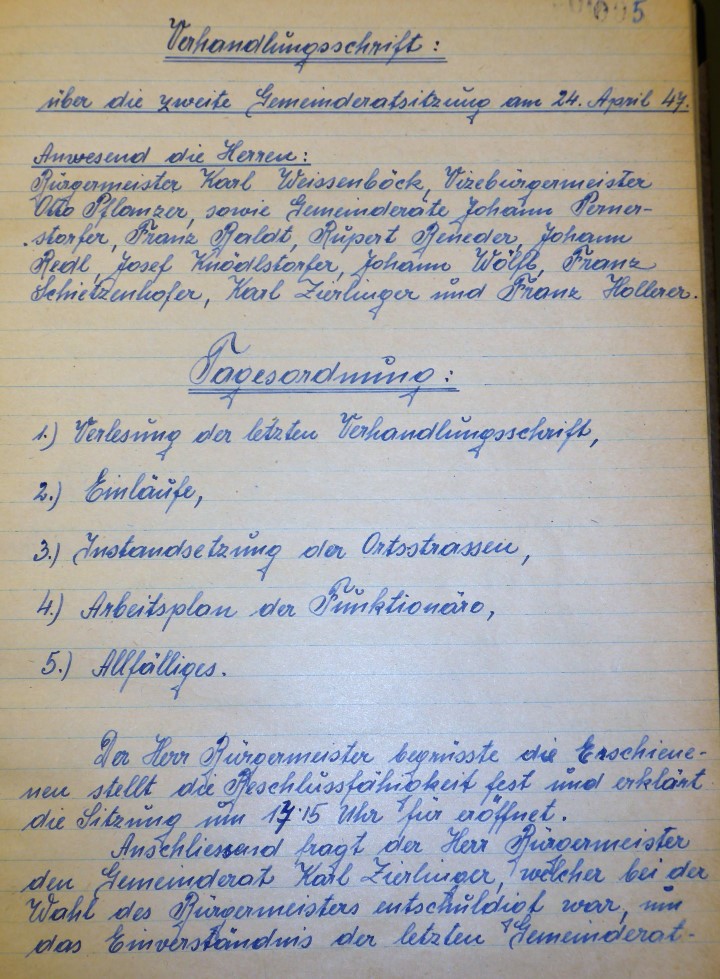 005
Verhandlungsschrift:
über die zweite Gemeinderatsitzung am 24. April 47.
Anwesend die Herren:
Bürgermeister Karl Weissenböck, Vizebürgermeister
Otto Pflanzer, sowie Gemeinderäte Johann Perner-
storfer, Franz Raldt, Rupert Reneder, Johann
Redl, Josef Knödlstorfer, Johann Wölfl, Franz
Schietzenhofer, Karl Zierlinger und Franz Hollerer.
Tagesordnung:
1.) Verlesung der letzten Verhandlungsschrift,
2.) Einläufe,
3.) Instandsetzung der Ortsstrassen,
4.) Arbeitsplan der Funktionäre,
5.) Allfälliges.
Der Herr Bürgermeister begrüsste die Erschiene-
nen stellt die Beschlussfähigkeit fest und erklärt
die Sitzung um 17.15 Uhr für eröffnet.
Anschliessend fragt der Herr Bürgermeister
den Gemeinderat Karl Zierlinger, welcher bei der
Wahl des Bürgermeisters entschuldigt war, um
das Einverständnis der letzten Gemeinderat-